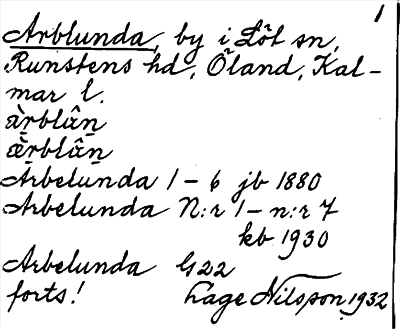 1
Arblunda, by i Löt sn,
Runstens hd, Öland, Kal-
mar l.
àrblâṉ
æ̀rblâṉ
Arbelunda 1-6 jb 1880
Arbelunda N:r 1-n:r 7
kb 1930
Arbelunda G22
forts! Lage Nilsson 1932